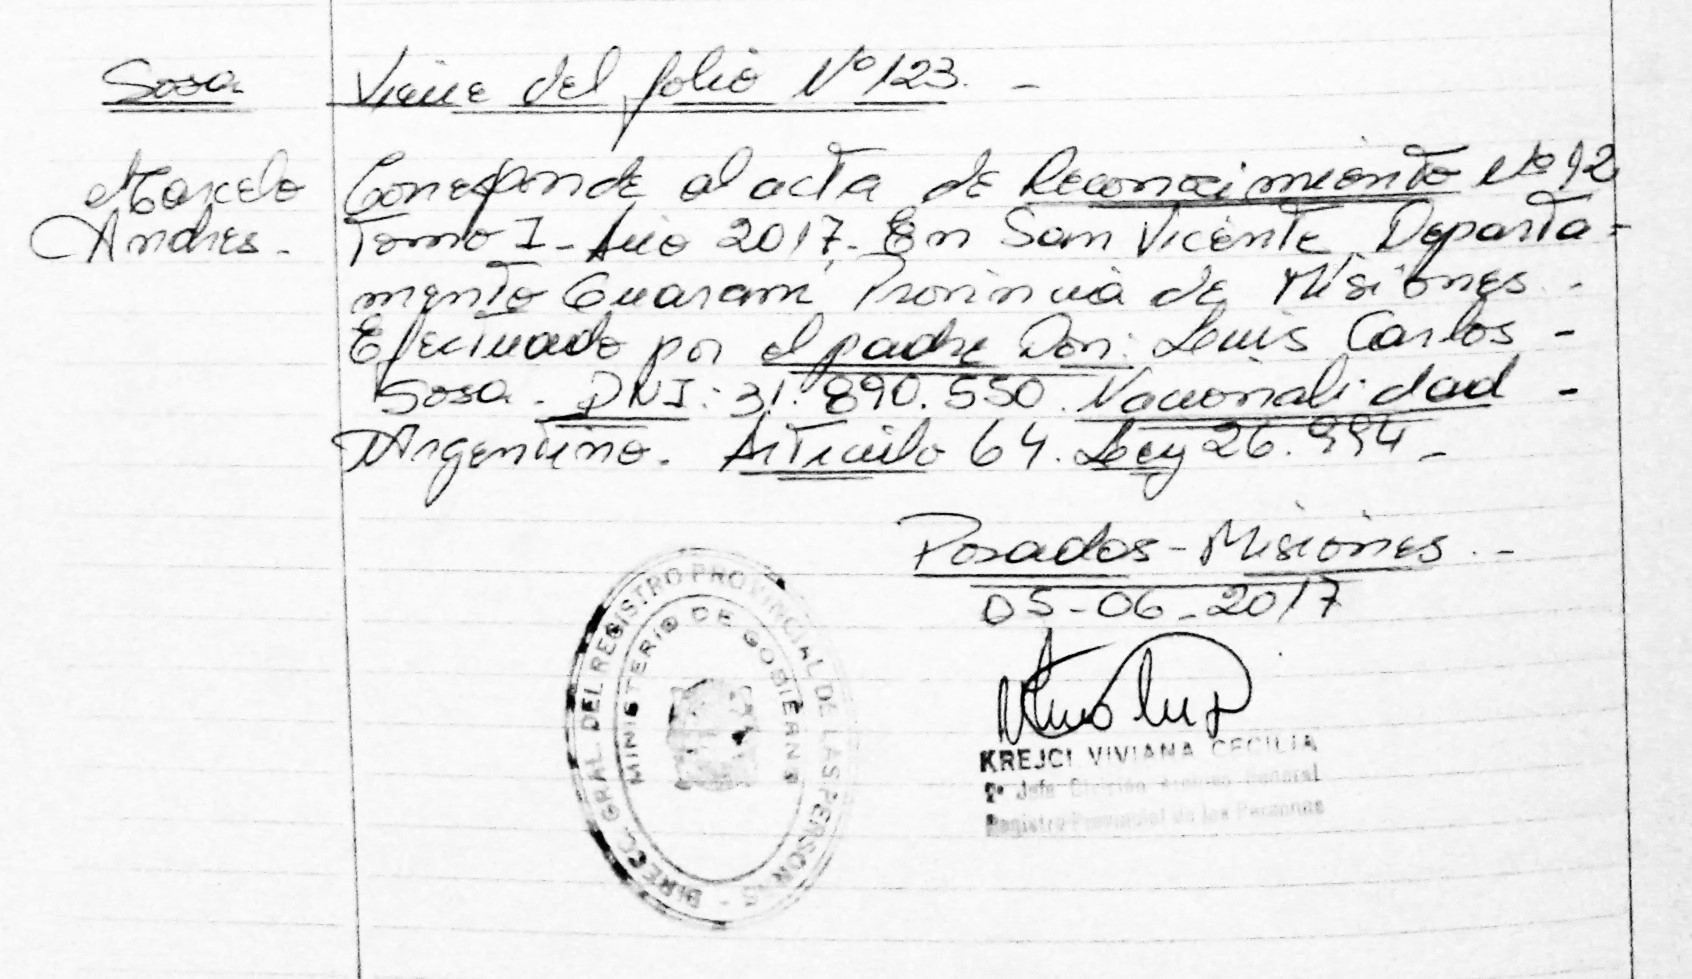 Sosa
Marcelo
Andres.-
Viene del folio Nº 123. -
Corresponde al acta de Reconocimiento Nº 12
Tomo I - Año 2017. En San Vicente Departa-
mento Guaraní Provincia de Misiones. -
Efectuado por el padre Don: Luis Carlos -
Sosa. DNI: 31.890.550. Nacionalidad -
Argentino. Artículo 64. Ley 26.994 -
Posadas - Misiones. -
05-06-2017
DIRECC. GRAL. DEL REGISTRO PROVINCIAL DE LAS PERSONAS -
MINISTERIO DE GOBIERNO
KREJCI VIVIANA CECILIA
2º Jefe División Archivo General
Registro Provincial de las Personas